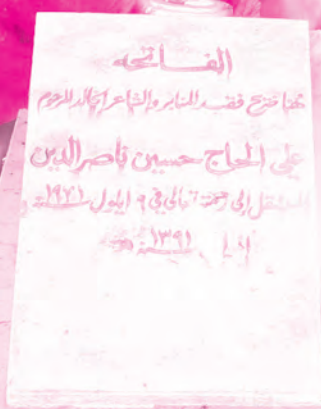 الفاتحه
هنا ضريح فقيد المنابر والشاعر الخالد المرحوم
علي الحاج حسين ناصر الدين
المنتقل إلى رحمته تعالى في ٩ ايلول سنة ١٩٧١
١٣٩١